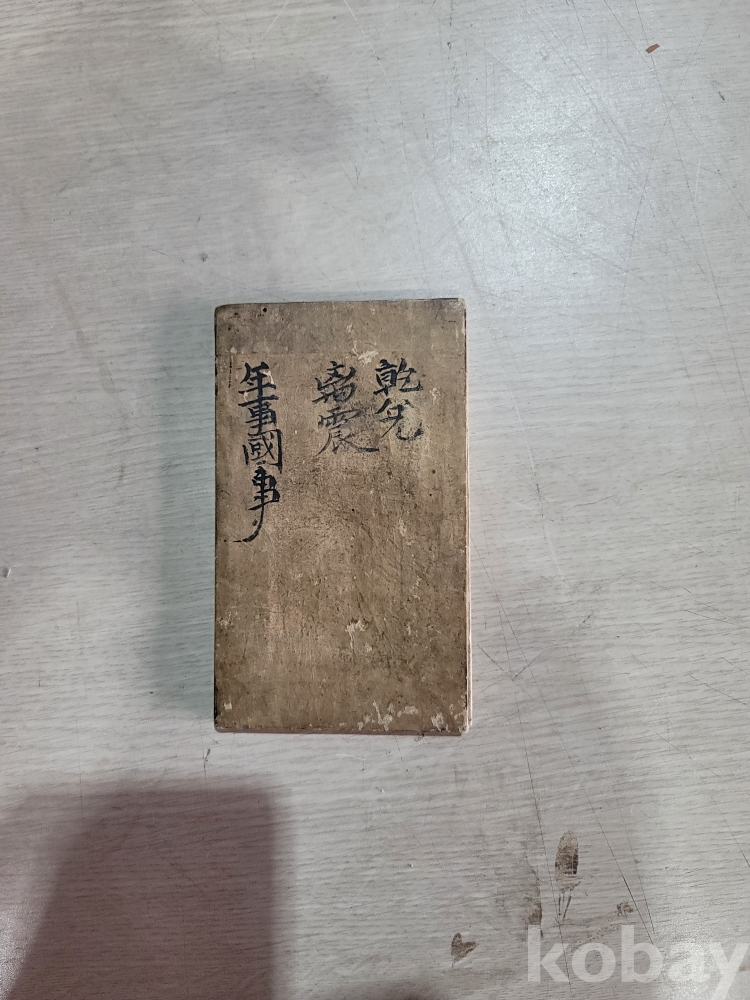 乾兌
震
年事國事
kobay